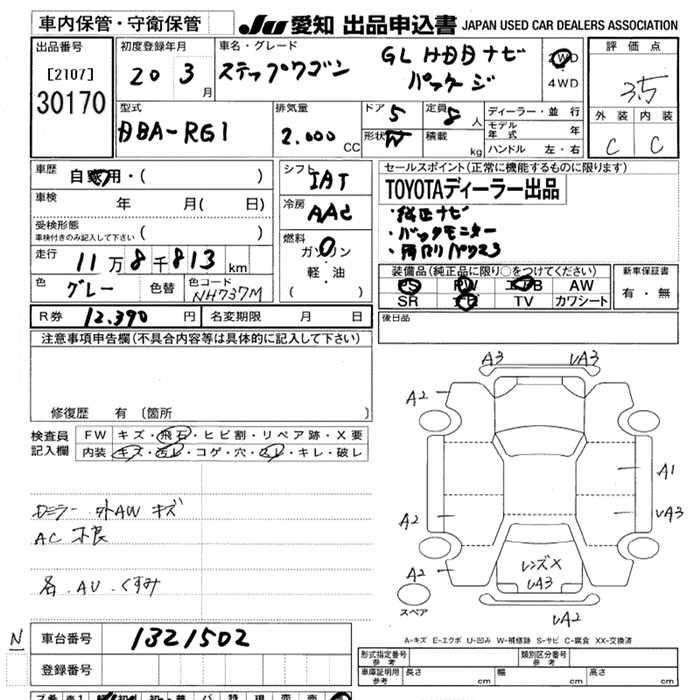 車内保管・守衛保管
JU 愛知 出品申込書 JAPAN USED CAR DEALERS ASSOCIATION
出品番号
[2107]
30170
初度登録年月
20 3 月
車名・グレード
ステップワゴン
GL HDDナビ
パッケージ
2WD
4WD
評価点
3.5
外装 内装
C C
型式
DBA-RG1
排気量
2.000 CC
ドア 5
形状 W
定員 8 人
積載 kg
ディーラー・並行
モデル年式 年
ハンドル 左・右
車歴
自家用・( )
車検 年 月( 日)
受検形態
車検付きのみ記入して下さい ( )
走行 11万8千813km
色 グレー 色替
色コード NH737M
シフト IAT
冷房 AAC
燃料
ガソリン
軽・油
( )
セールスポイント(正常に機能するものに限ります)
TOYOTAディーラー出品
・純正ナビ
・バックモニター
装備品(純正品に限り○をつけてください)
PS PW エアB AW
SR TV カワシート
新車保証書
有・無
R券 12.390 円 名変期限 月 日
後日品
注意事項申告欄(不具合内容等は具体的に記入して下さい)
修復歴 有 [箇所 ]
検査員
記入欄
FW キズ・飛石・ヒビ割・リペア跡・X要
内装 キズ・汚レ・コゲ・穴・キレ・破レ
Dミラー 外AW キズ
AC 不良
各 AU くすみ
A3 UA3
A2
A1
A2 UA3
A2
レンズX
UA3
UA2
スペア
A-キズ E-エクボ U-凹み W-補修跡 S-サビ C-腐食 XX-交換済
N
車台番号 1321502
登録番号
形式指定番号 参考
類別区分番号 参考
車庫証明用 参考 長さ cm 幅 cm 高さ cm